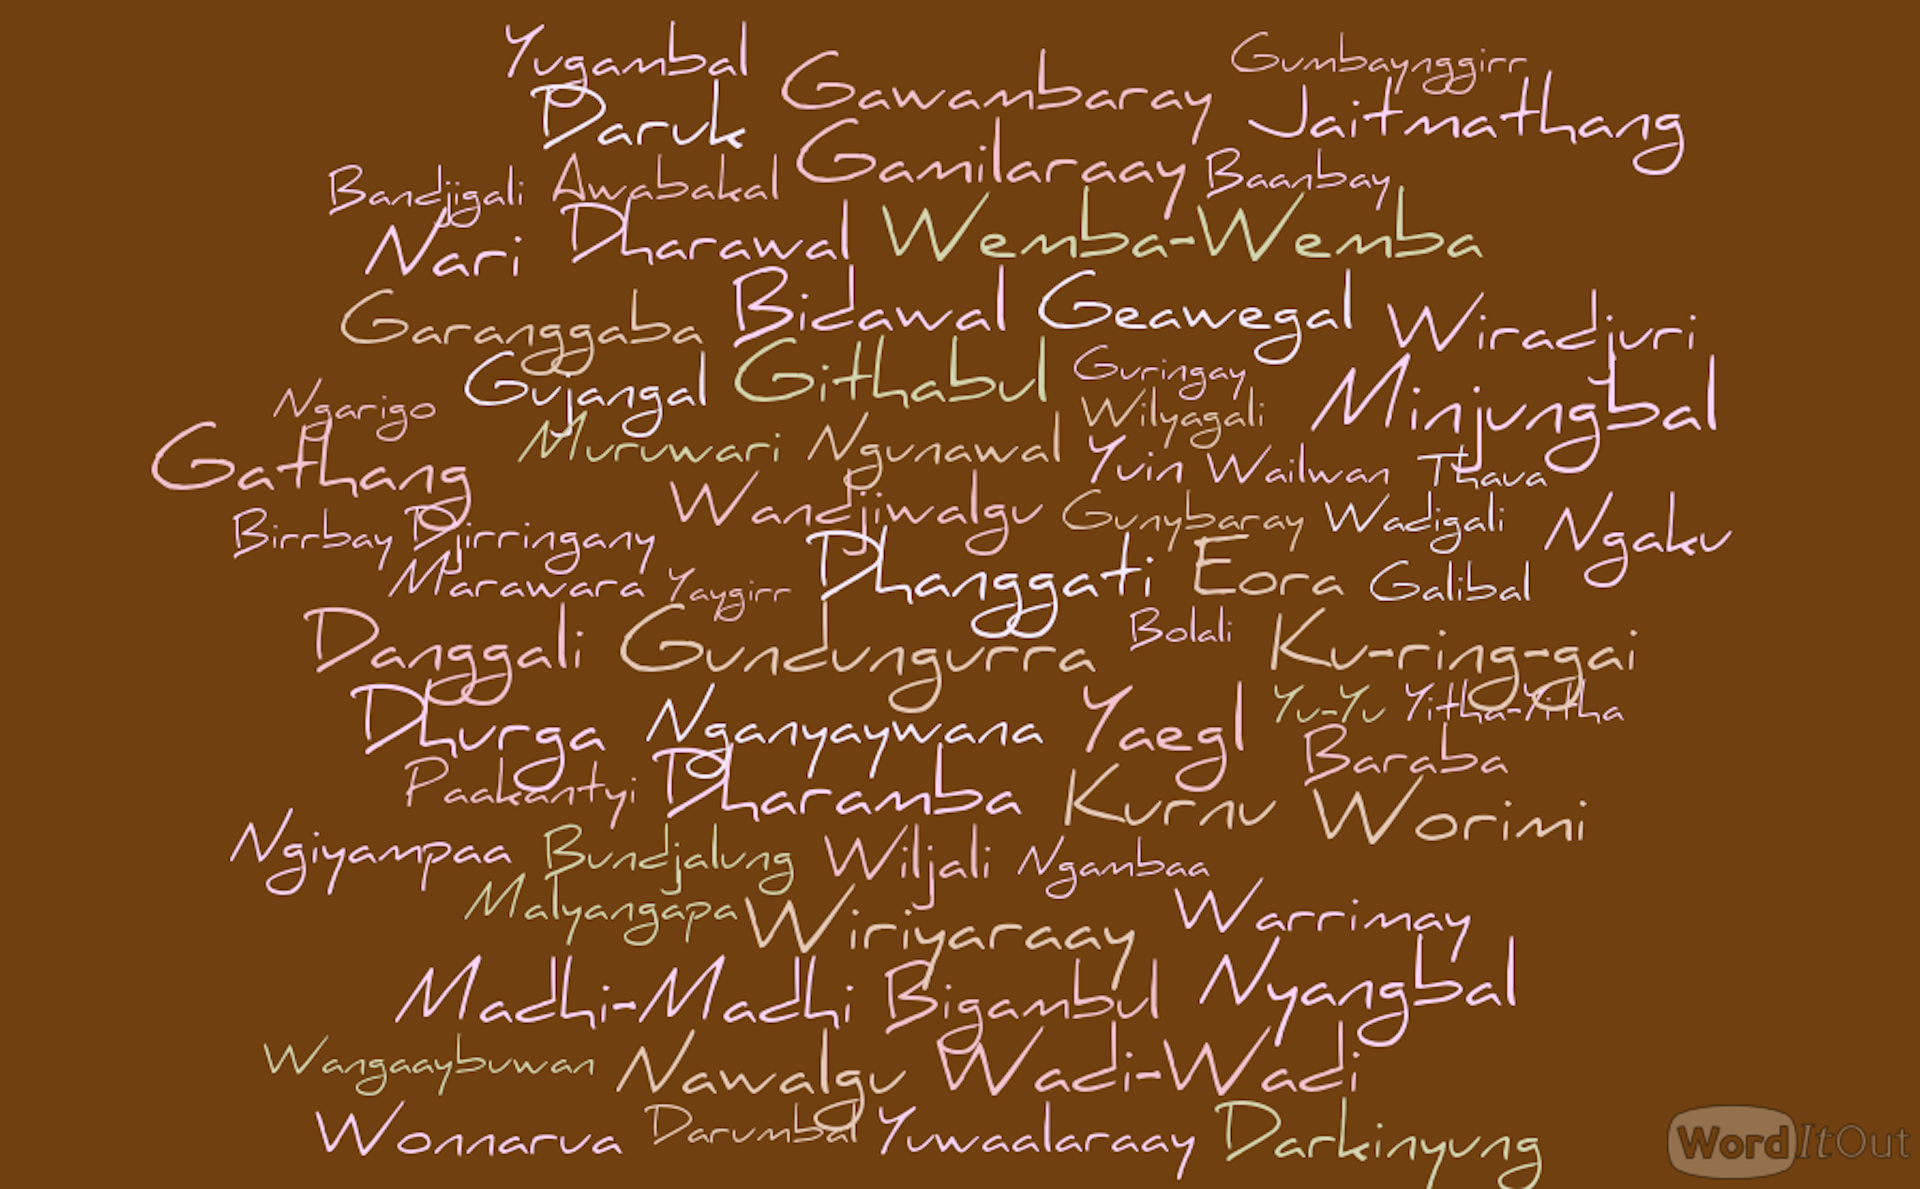 Yugambal Gawambaray Gumbaynggirr
Daruk Jaitmathang
Bandjigali Awabakal Gamilaraay Baanbay
Nari Dharawal Wemba-Wemba
Garanggaba Bidawal Geawegal Wiradjuri
Ngarigo Gujangal Githabul Guringay Minjungbal
Wilyagali
Gathang Muruwari Ngunawal Yuin Wailwan Thava
Birrbay Djirringany Wandjiwalgu Gunybaray Wadigali Ngaku
Marawara Yaygirr Dhanggati Eora Galibal
Danggali Gundungurra Bolali Ku-ring-gai
Dhurga Nganyaywana Yaegl Yu-Yu Yitha-Yitha
Baraba
Paakantyi Dharamba Kurnu Worimi
Ngiyampaa Bundjalung Wiljali Ngambaa
Malyangapa Wiriyaraay Warrimay
Madhi-Madhi Bigambul Nyangbal
Wangaaybuwan Nawalgu Wadi-Wadi
Wonnarua Darumbal Yuwaalaraay Darkinyung
WordItOut